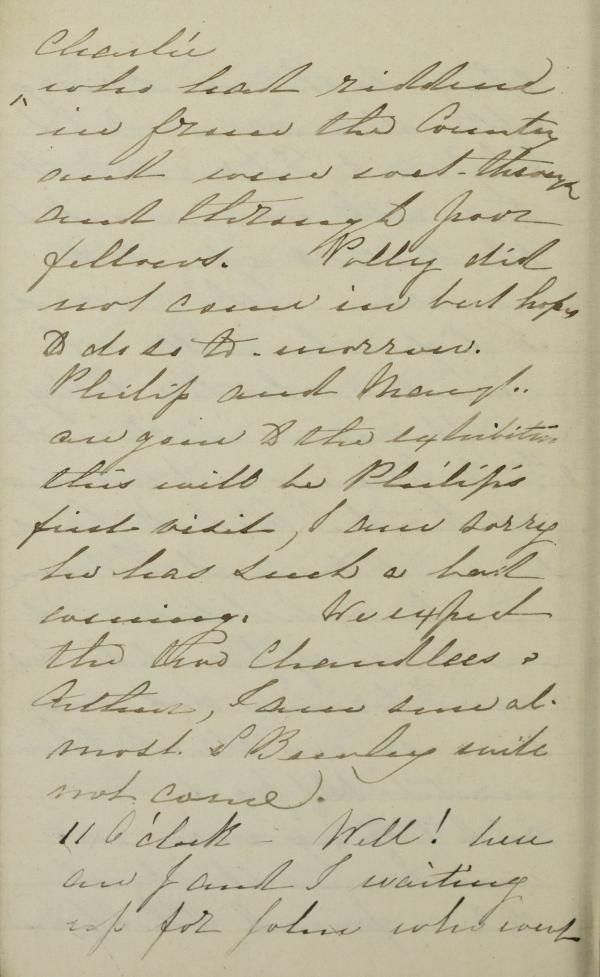 Charlie
who had ridden
in from the Country
and were wet-through
and through poor
fellows. Polly did
not come in but hopes
to do so to-morrow.
Philip and Mary
are gone to the exhibition
this will be Philip's
first visit, I am sorry
he has such a bad
evening. We expect
the two Chandlees &
Arthur, I am sure al-
most S B will
not come).
11 O'clock - Well! here
are J and I waiting
up for John who went